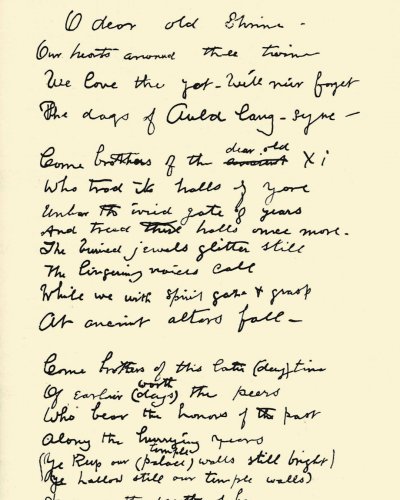 O dear old Shrine -
Our hearts around thee twine
We love thee yet - We'll ne'er forget
The days of Auld Lang - Syne -
Come brothers of the dear old ancient Xi
Who trod its halls of yore
Unbar the ivied gate of years
And tread thine halls once more.
The buried jewels glitter still
The lingering voices call
While we with spirit gaze & grasp
At ancient altars fall -
Come brothers of this later (day) time
Of Earlier (days) worth the peers
Who bear the honors of the past
Along the hurrying years
(Ye Keep our (palace) temple walls still bright)
(Ye hallow still our temple walls)